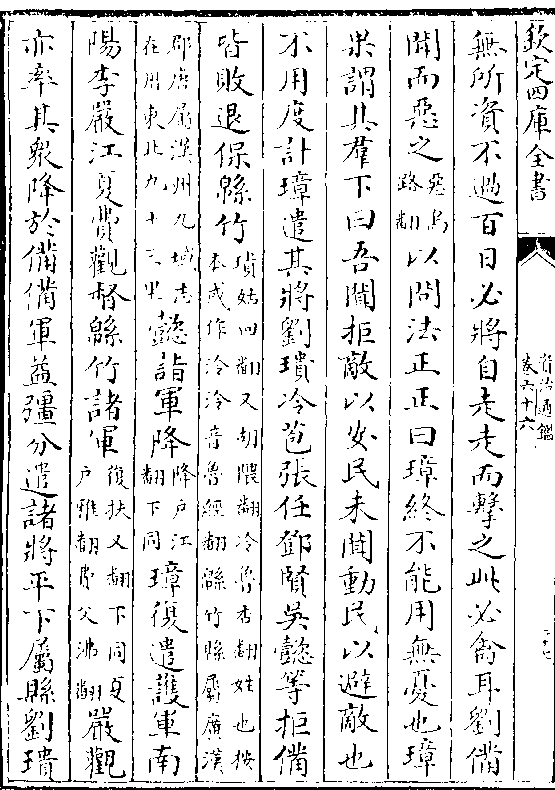 欽定四庫全書
資治通鑑
卷六十六
無所資不過百日必將自走走而擊之此必禽耳劉備
聞而惡之惡烏路翻以問法正正曰璋終不能用無憂也璋
果謂其羣下曰吾聞拒敵以安民未聞動民以避敵也
不用度計璋遣其將劉璝冷苞張任鄧賢吳懿等拒備
皆敗退保緜竹璝姑回翻又胡隈翻冷魯杏翻姓也按本或作泠泠音魯經翻緜竹縣屬廣漢
郡唐屬漢州九域志在州東北九十三里懿詣軍降降户江翻下同璋復遣護軍南
陽李嚴江夏費觀督緜竹諸軍復扶又翻下同夏户雅翻費父沸翻嚴觀
亦率其衆降於備備軍益彊分遣諸將平下屬縣劉璝